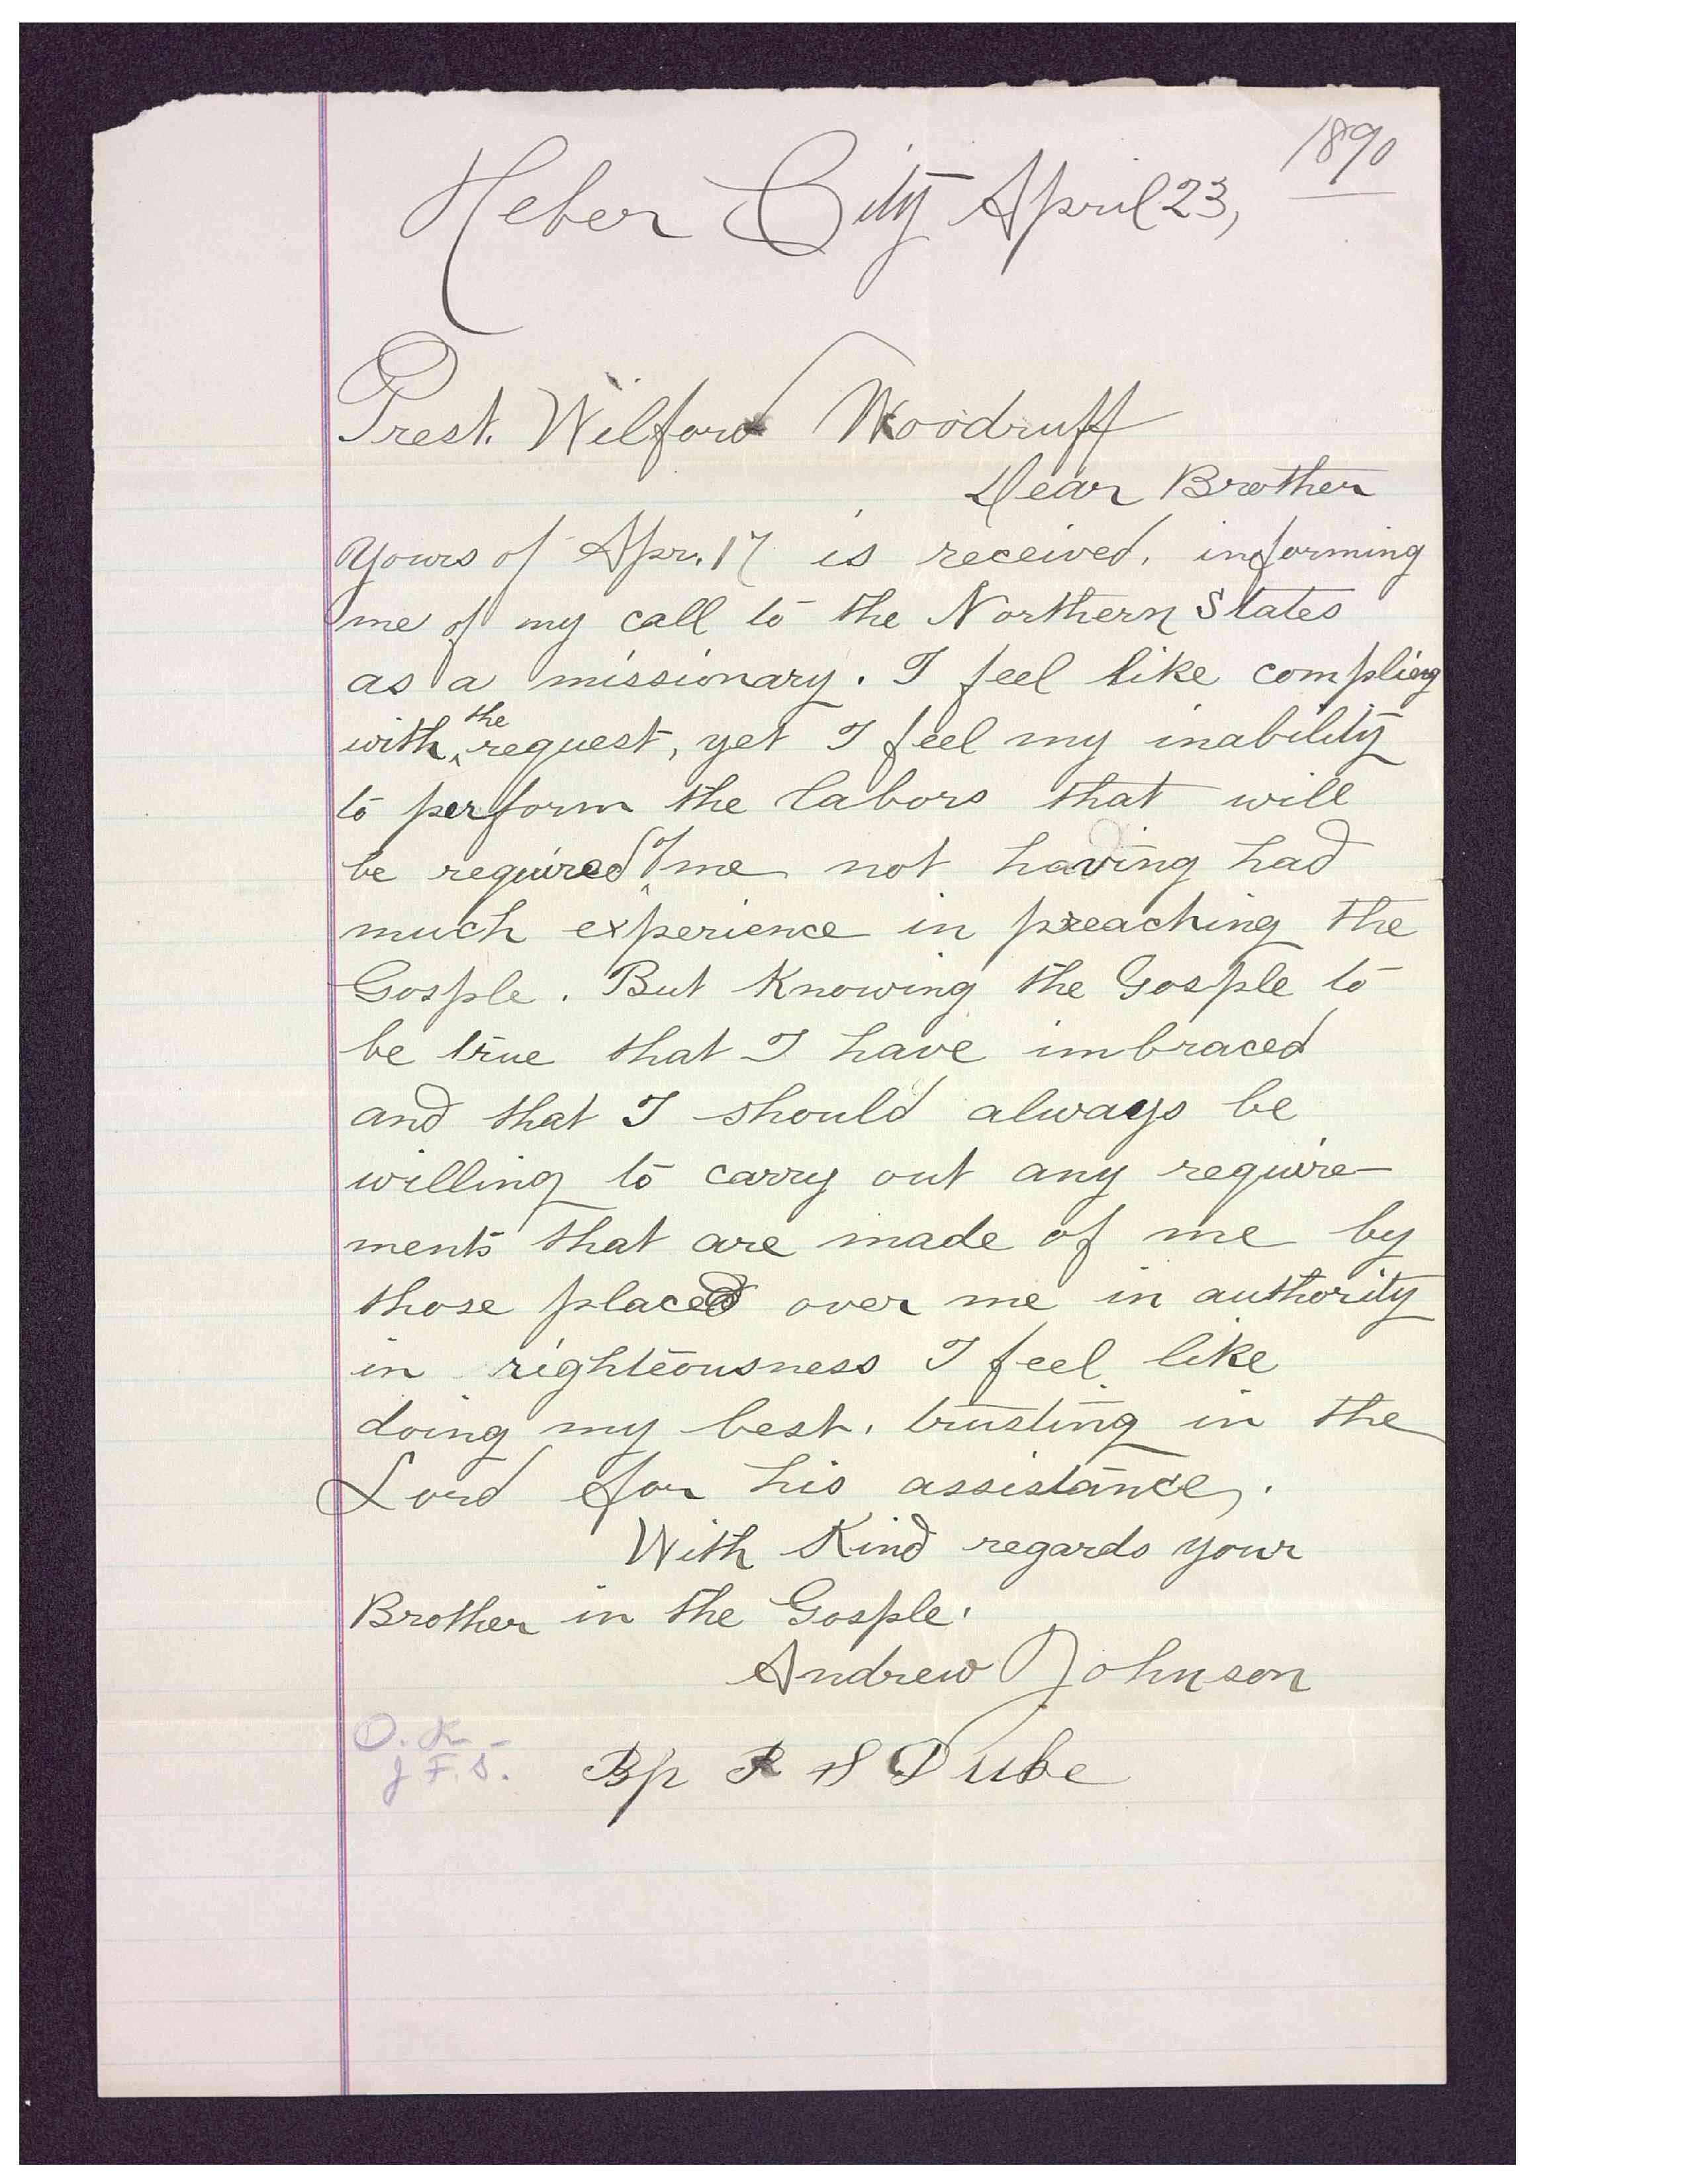 1890
Heber City April 23,
Prest. Wilford Woodruff
Dear Brother
Yours of Apr. 17 is received, informing
me of my call to the Northern States
as a missionary. I feel like compliing
with the request, yet I feel my inability
to perform the labors that will
be required of me not having had
much experience in preaching the
Gosple. But Knowing the Gosple to
be true that I have imbraced
and that I should always be
willing to carry out any require-
ments that are made of me by
those placed over me in authority
in righteousness I feel like
doing my best, trusting in the
Lord for his assistance.
With Kind regards your
Brother in the Gosple.
Andrew Johnson
O. K. -
J. F. S.
Bp R S Duke